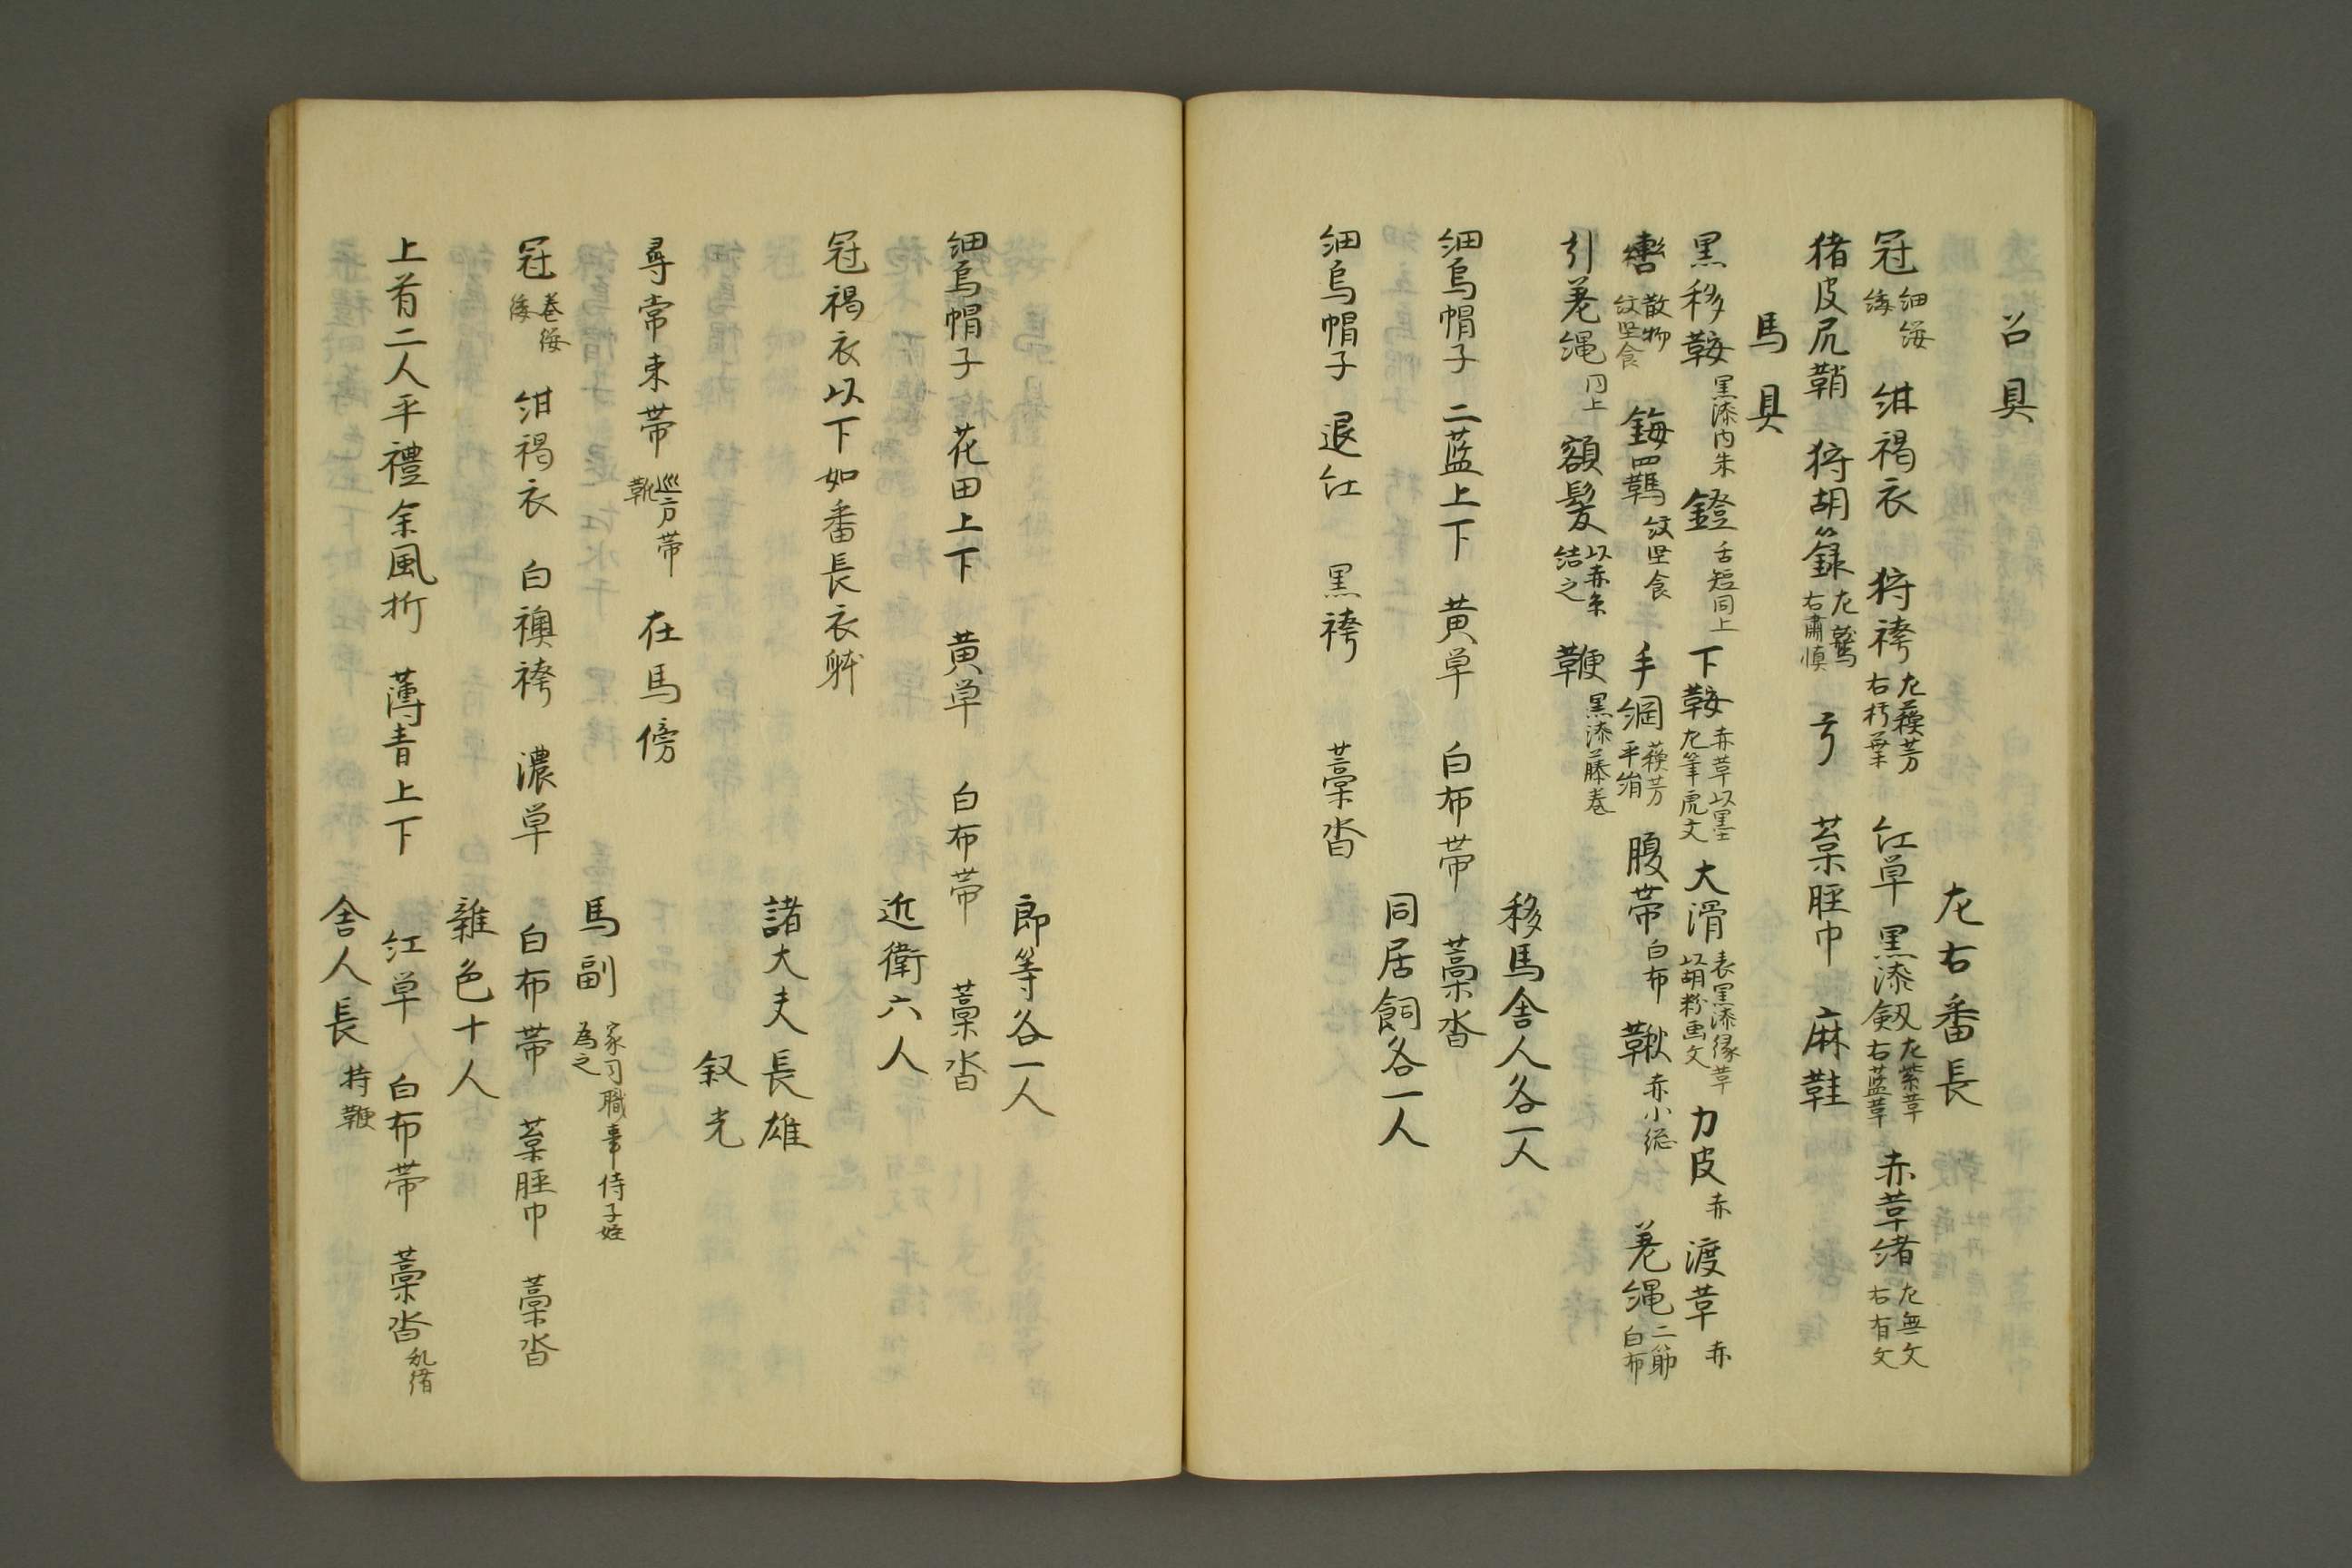 召具
左右番長
冠 細纓 緌 紺褐衣 狩袴 左蘓芳 右朽葉 紅単 黒漆剱 左紫革 右藍革 赤革緒 左無文 右有文
猪皮尻鞘 狩胡籙 左鷲 右肅慎 弓 葈脛巾 麻鞋
馬具
黒移鞍 黒漆内朱 鐙 舌短同上 下鞍 赤革以墨 左筆虎文 大滑 表黒漆縁革 以胡粉画文 力皮 赤 渡革 赤
轡 散物 杏葉 鞦 手綱 蘓芳 平絹 腹帯 白布 鞦 赤小総 差縄 二筋 白布
引差縄 同上 額髪 以赤糸 結之 鞭 黒漆藤巻
移馬舎人各一人
細烏帽子 二藍上下 黄単 白布帯 藁沓
同居飼各一人
細烏帽子 退红 黒袴 藁沓
郎等各一人
細烏帽子 花田上下 黄単 白布帯 藁沓
近衛六人
冠褐衣以下如番長衣躰
諸大夫長雄
叙光
尋常束帯 巡方帯 靴 在馬傍
馬副 家司職事侍子姪 為之
冠 巻纓 緌 紺褐衣 白襖袴 濃単 白布帯 葈脛巾 藁沓
雜色十人
上首二人平禮余風折 薄青上下 紅単 白布帯 藁沓 乱緒
舎人長 持鞭